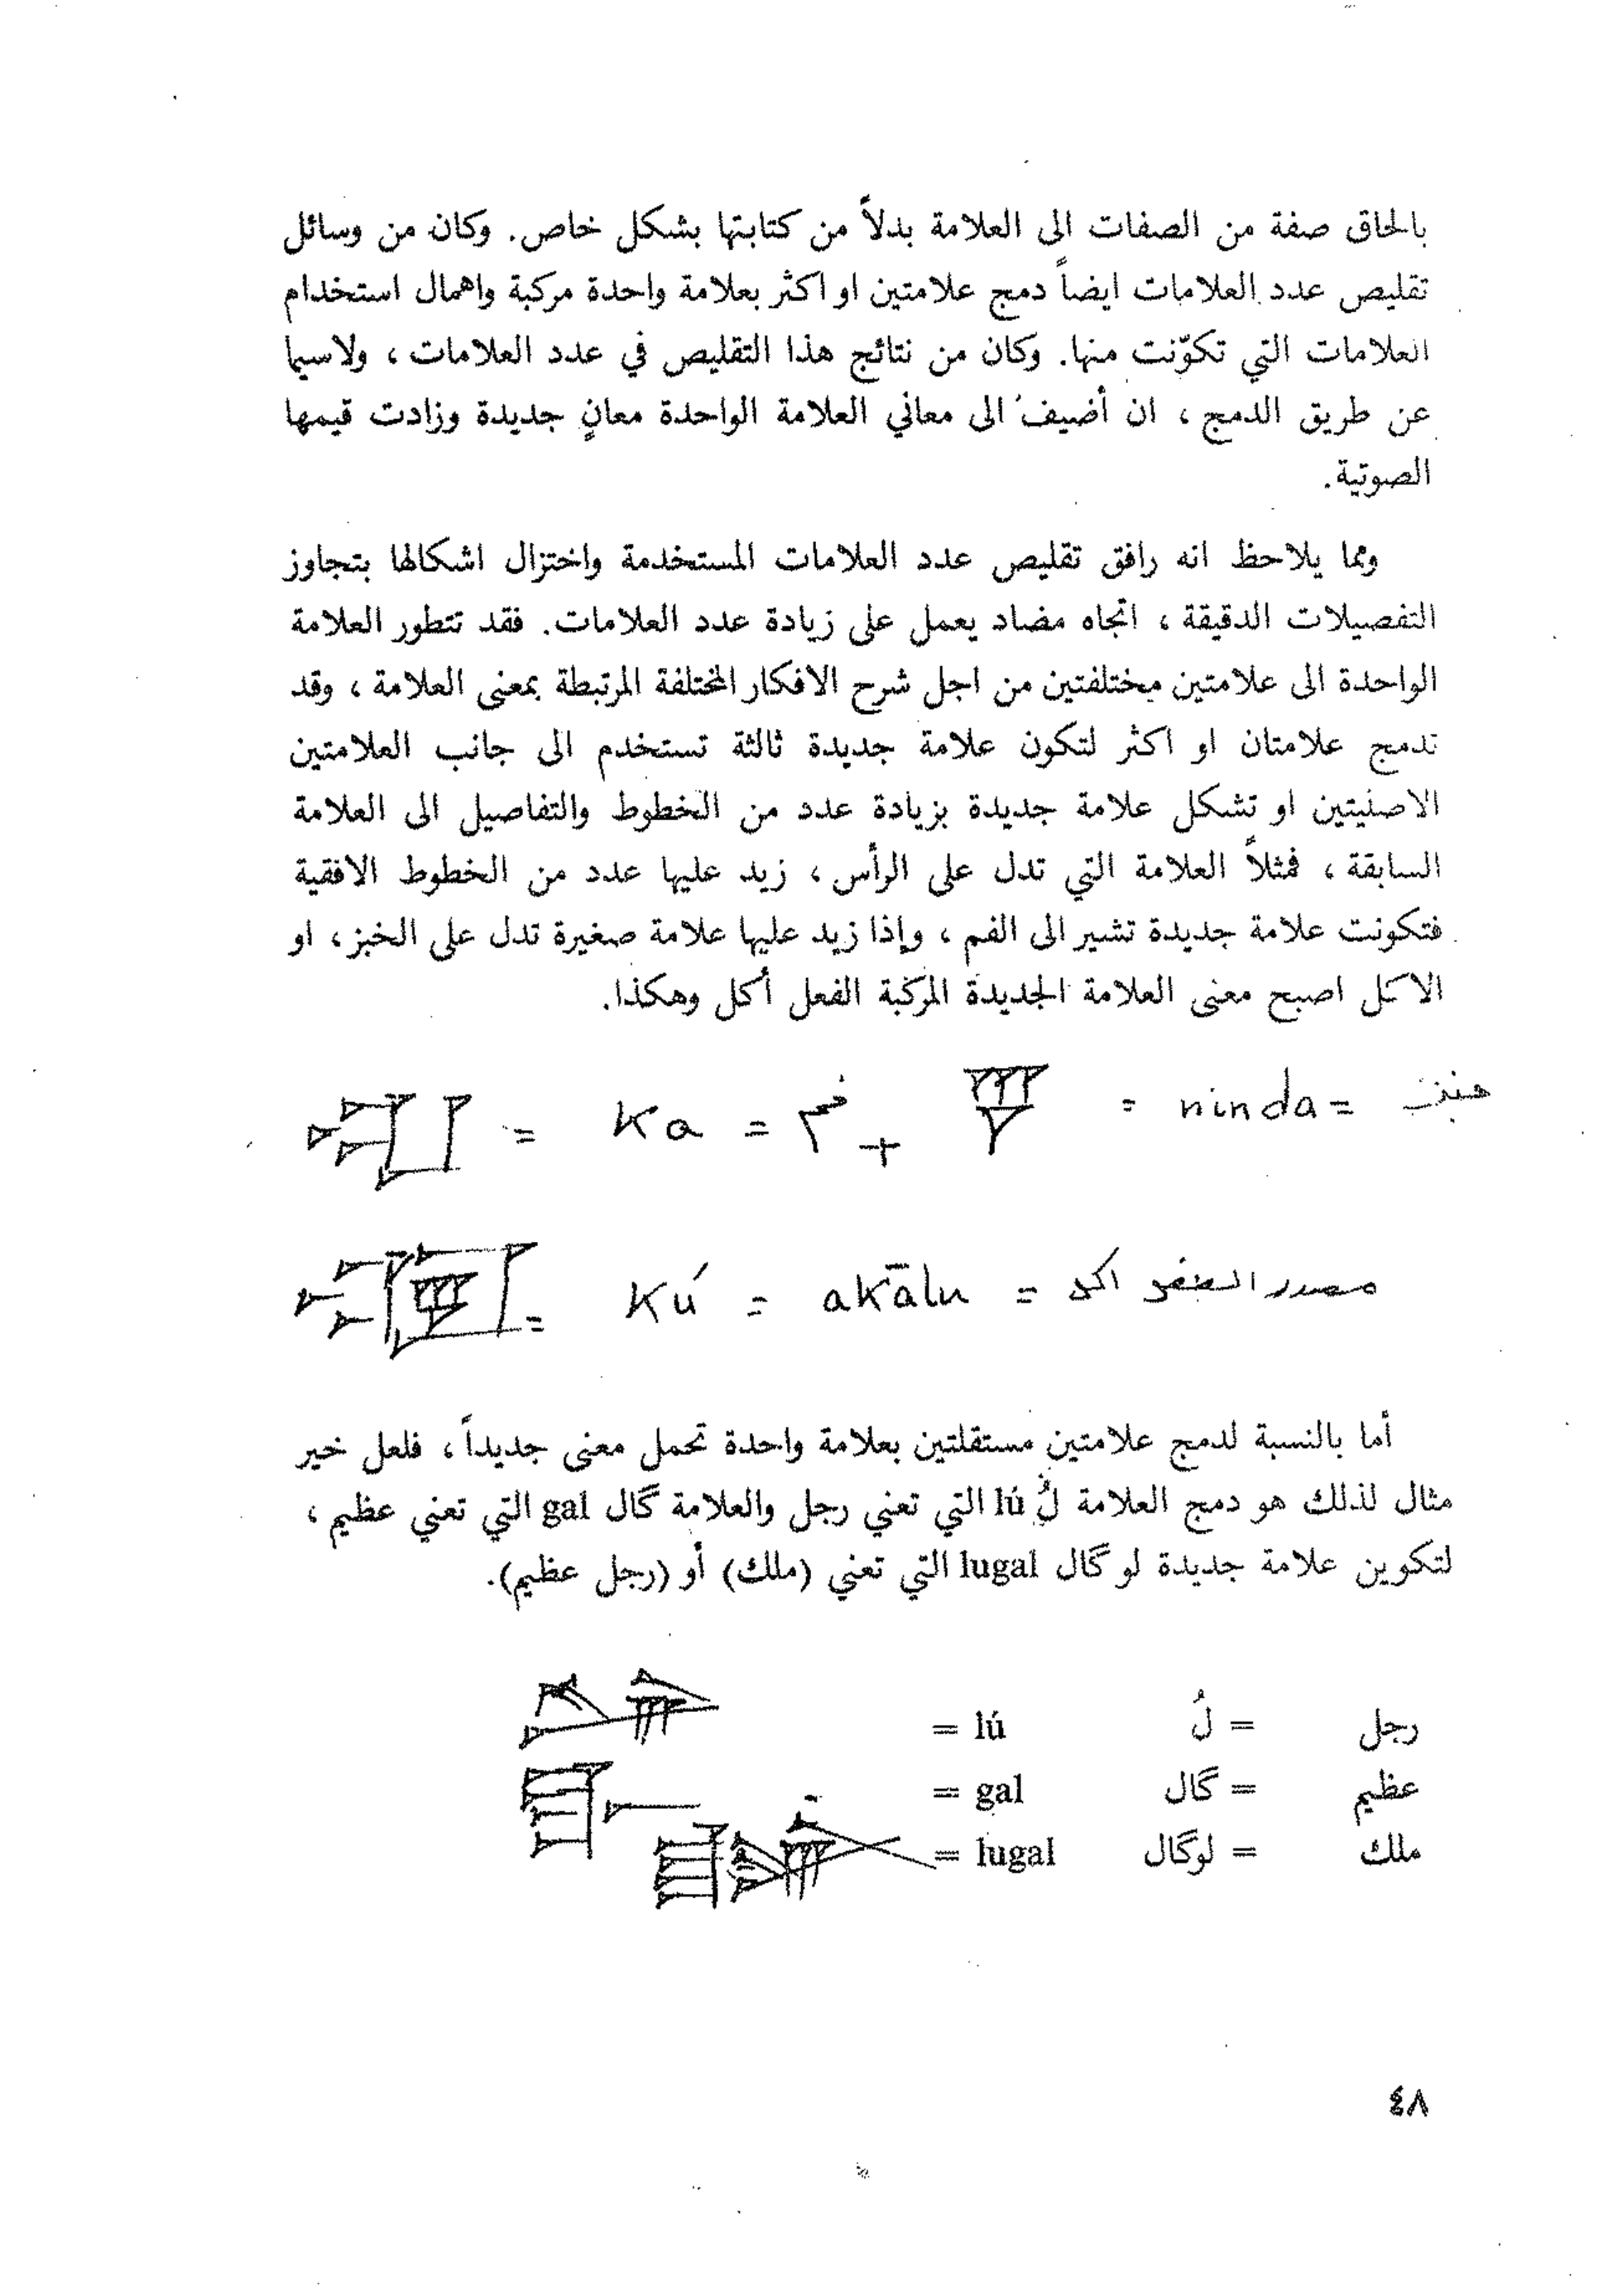 بالحاق صفة من الصفات الى العلامة بدلاً من كتابتها بشكل خاص. وكان من وسائل
تقليص عدد العلامات ايضاً دمج علامتين او اكثر بعلامة واحدة مركبة واهمال استخدام
العلامات التي تكوّنت منها. وكان من نتائج هذا التقليص في عدد العلامات ، ولاسيما
عن طريق الدمج ، ان أضيف الى معاني العلامة الواحدة معانٍ جديدة وزادت قيمها
الصوتية.
ومما يلاحظ انه رافق تقليص عدد العلامات المستخدمة واختزال اشكالها بتجاوز
التفصيلات الدقيقة ، اتجاه مضاد يعمل على زيادة عدد العلامات. فقد تتطور العلامة
الواحدة الى علامتين مختلفتين من اجل شرح الافكار المختلفة المرتبطة بمعنى العلامة ، وقد
تدمج علامتان او اكثر لتكون علامة جديدة ثالثة تستخدم الى جانب العلامتين
الاصليتين او تشكل علامة جديدة بزيادة عدد من الخطوط والتفاصيل الى العلامة
السابقة ، فمثلاً العلامة التي تدل على الرأس ، زيد عليها عدد من الخطوط الافقية
فتكونت علامة جديدة تشير الى الفم ، وإذا زيد عليها علامة صغيرة تدل على الخبز ، او
الاكل اصبح معنى العلامة الجديدة المركبة الفعل أكل وهكذا.
= Ka = فم + = ninda = خبز
= Kú = akālu = مصدر الفعل اكل
أما بالنسبة لدمج علامتين مستقلتين بعلامة واحدة تحمل معنى جديداً ، فلعل خير
مثال لذلك هو دمج العلامة لُ lú التي تعني رجل والعلامة گال gal التي تعني عظيم ،
لتكوين علامة جديدة لو گال lugal التي تعني (ملك) أو (رجل عظيم).
رجل = لُ = lú
عظيم = گال = gal
ملك = لوگال = lugal
٤٨